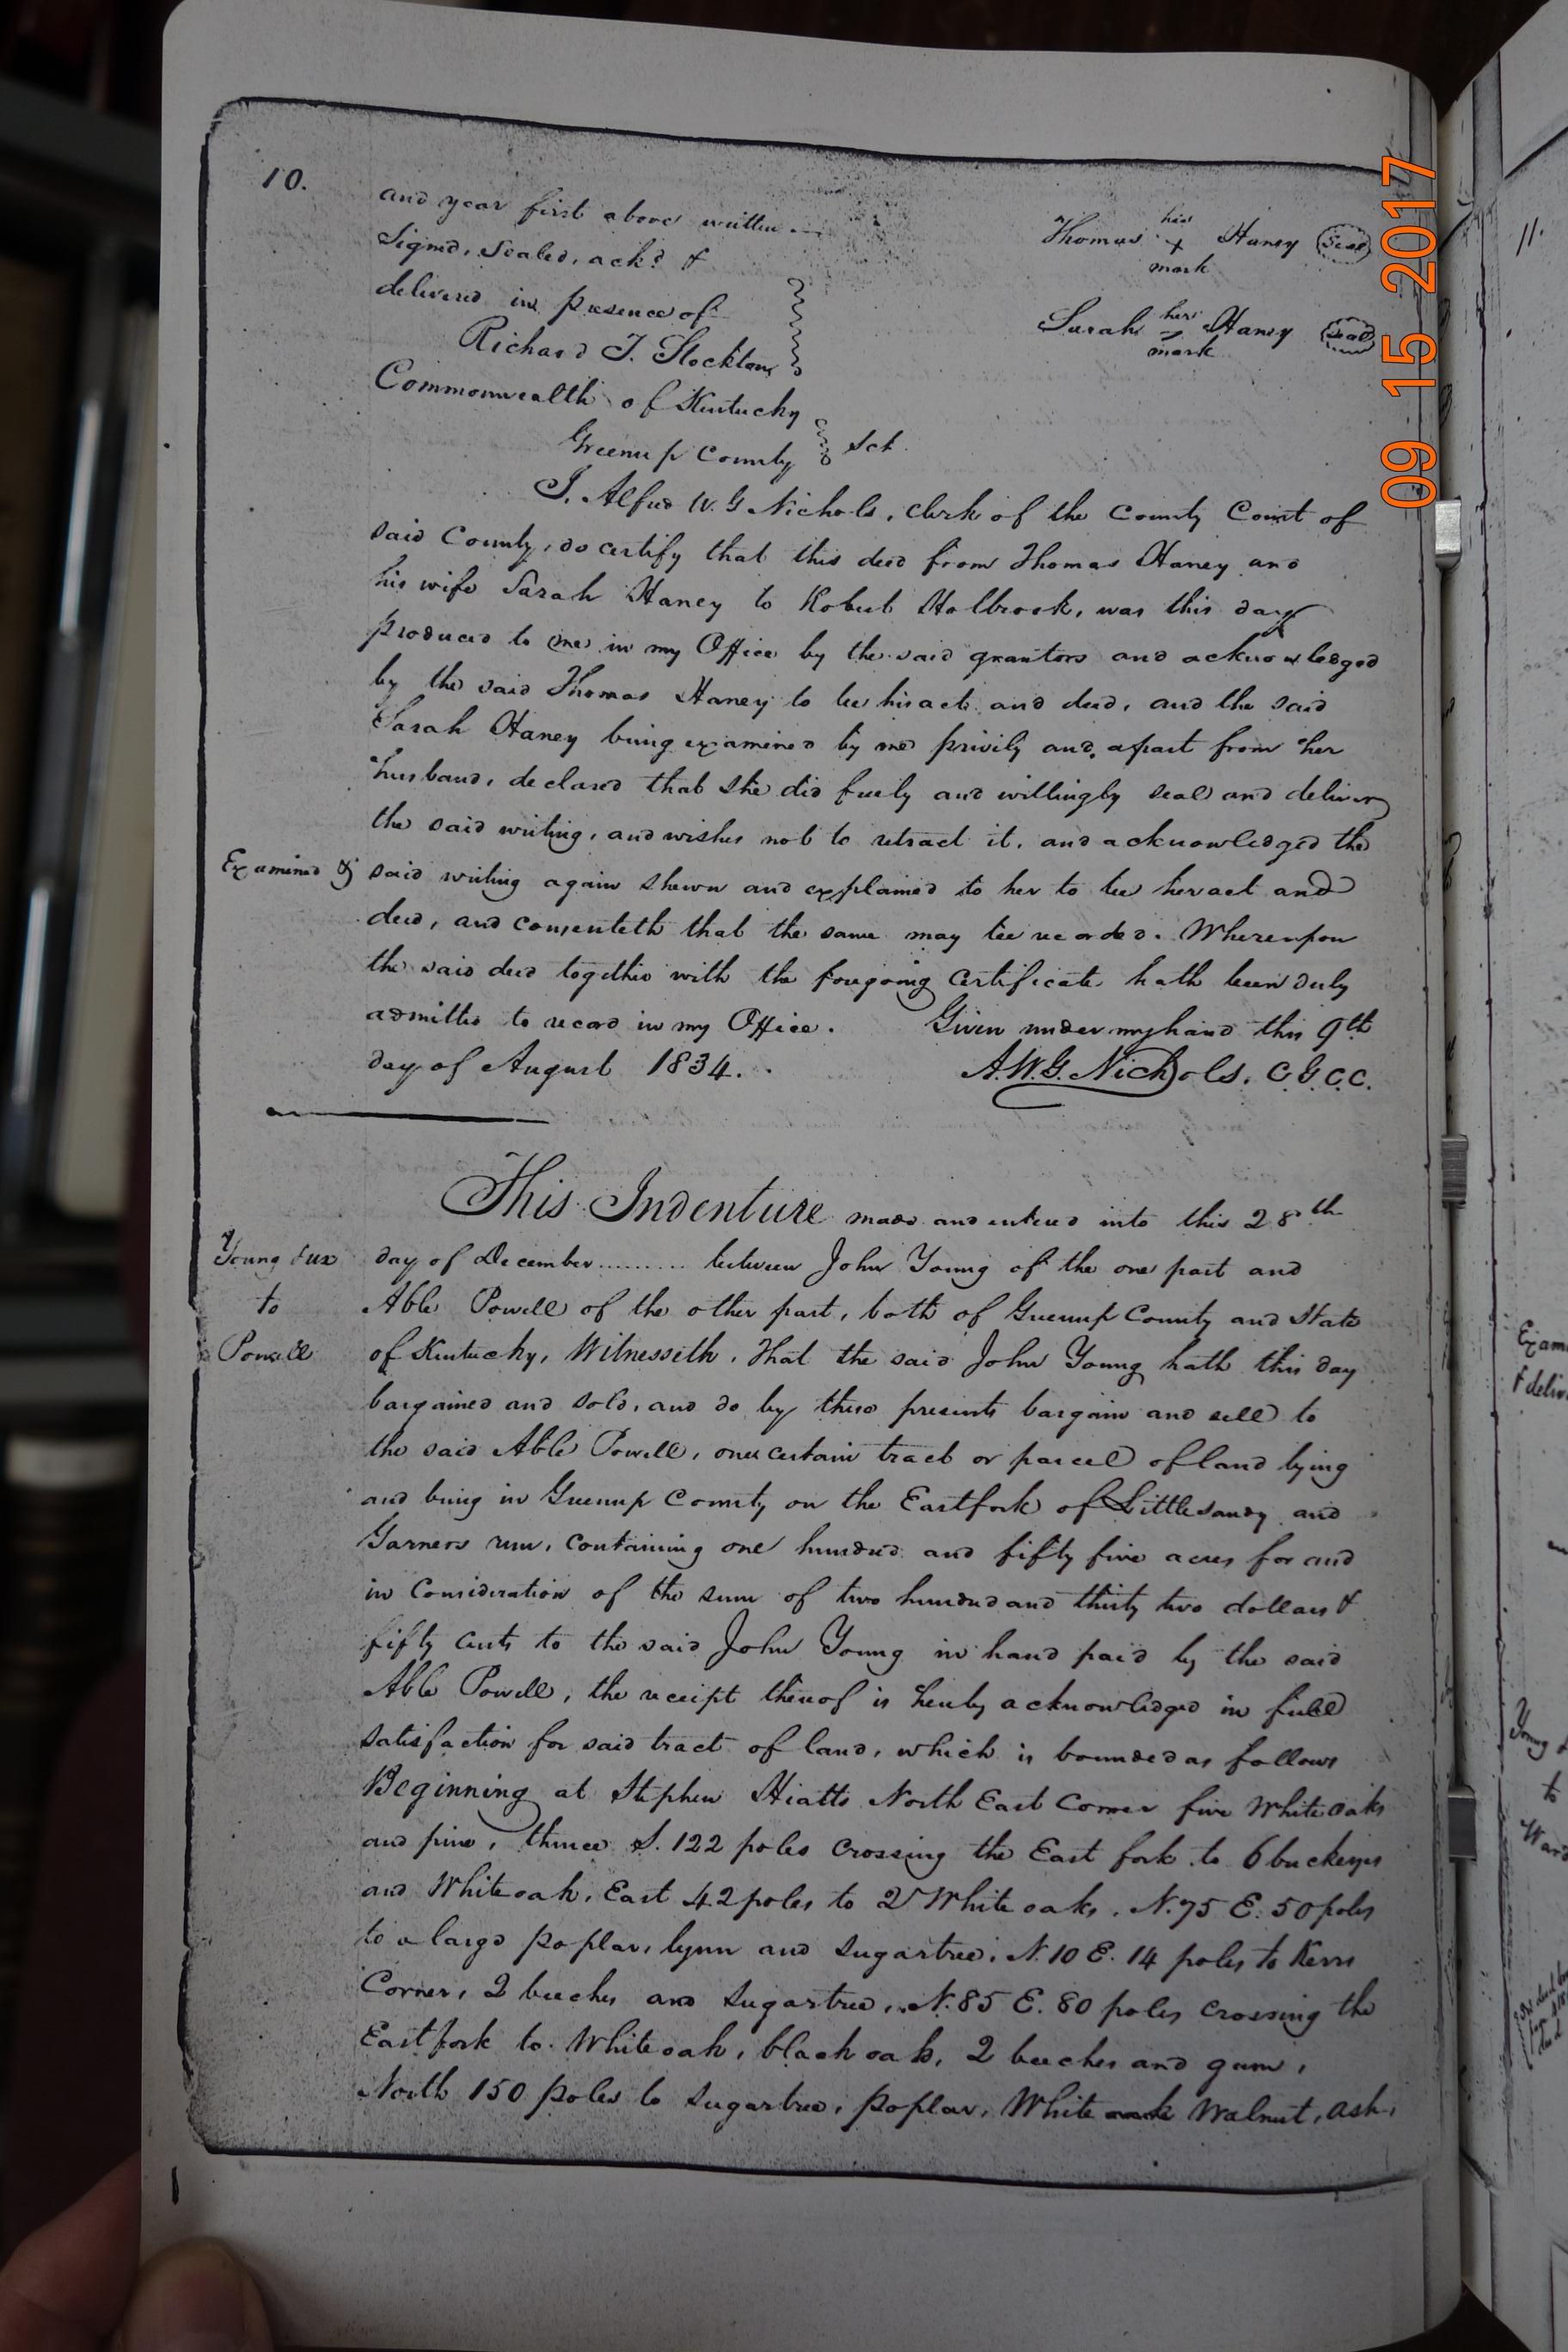 10.
and year first above written
Signed, Sealed, ackd &
delivered in presence of
Richard T. Stockton
Thomas his x mark Haney Seal
Sarah her mark Haney Seal
Commonwealth of Kentucky
Greenup County Sct
I. Alfred W. G Nichols, clerk of the County Court of
said County, do certify that this deed from Thomas Haney and
his wife Sarah Haney to Robert Holbrook, was this day
produced to me in my Office by the said grantors and acknowledged
by the said Thomas Haney to be his act and deed, and the said
Sarah Haney being examined by me privily and apart from her
husband, declared that she did freely and willingly seal and deliver
the said writing, and wishes not to retract it, and acknowledged the
Examined &
said writing again shewn and explained to her to be her act and
deed, and consenteth that the same may be recorded. Whereupon
the said deed together with the foregoing certificate hath been duly
admitted to record in my Office. Given under my hand this 9th
day of August 1834.
A.W.G. Nichols. C.G.C.C.
This Indenture made and entered into this 28th
Young & ux
to
Powell
day of December ......... between John Young of the one part and
Able Powell of the other part, both of Greenup County and State
of Kentucky, Witnesseth. That the said John Young hath this day
bargained and sold, and do by these presents bargain and sell to
the said Able Powell, one certain tract or parcel of land lying
and being in Greenup County on the Eastfork of Littlesandy and
Garners run, containing one hundred and fifty five acres for and
in Consideration of the sum of two hundred and thirty two dollars &
fifty cents to the said John Young in hand paid by the said
Able Powell, the receipt thereof is hereby acknowledged in full
satisfaction for said tract of land, which is bounded as follows
Beginning at Stephen Hiatts North East Corner five White oaks
and pine, thence S. 122 poles crossing the East fork to 6 buckeyes
and White oak, East 42 poles to 2 White oaks. N. 75 E. 50 poles
to a large poplar, lynn and Sugartree. N. 10 E. 14 poles to Kerrs
Corner, 2 beeches and Sugartree, N. 85 E. 80 poles crossing the
Eastfork to White oak, black oak, 2 beeches and gum,
North 150 poles to Sugartree, poplar, White Walnut, ash,
09 15 2017
11.
Exam
& deliv
Young &
to
Ward